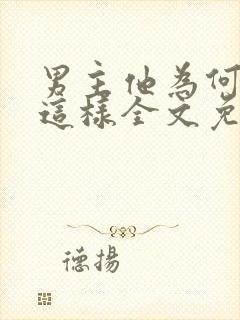 男主他為何
這樣全文免
德揚